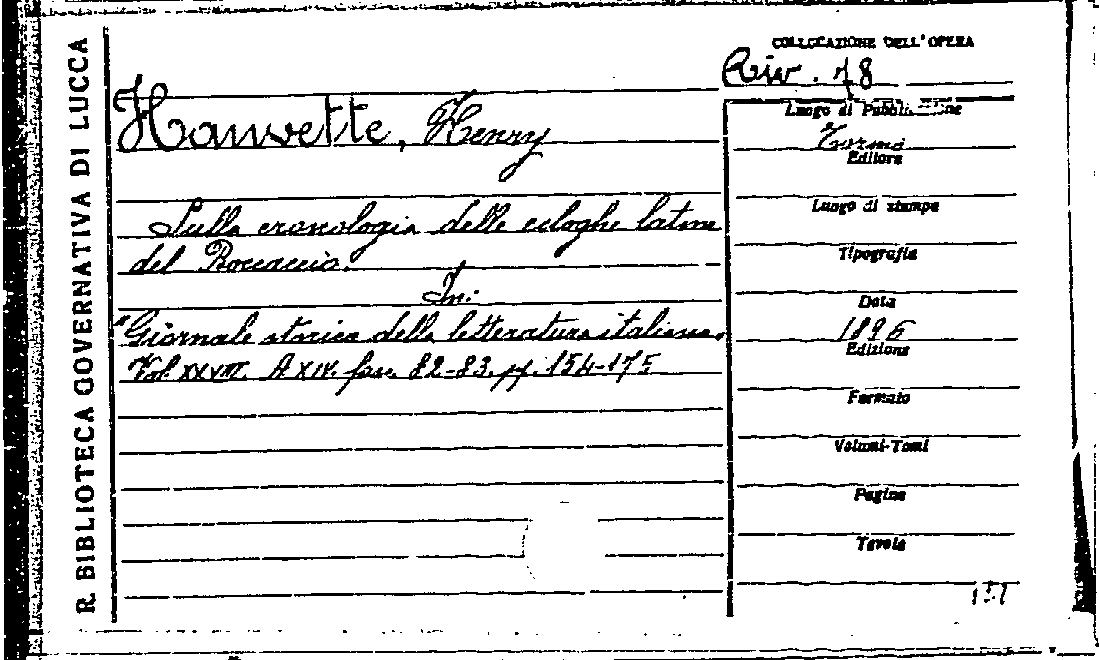 R. BIBLIOTECA GOVERNATIVA DI LUCCA
COLLOCAZIONE DELL'OPERA
Riv. 78
Hauvette, Henry
Sulla cronologia delle ecloghe latine
del Boccaccio.
In:
"Giornale storico della letteratura italiana.
Vol. XXVIII. A XIV. fasc. 82-83. pp. 154-175
Luogo di Pubblicazione
Torino
Editore
Luogo di stampa
Tipografia
Data
1896
Edizione
Formato
Volumi-Tomi
Pagine
Tavole